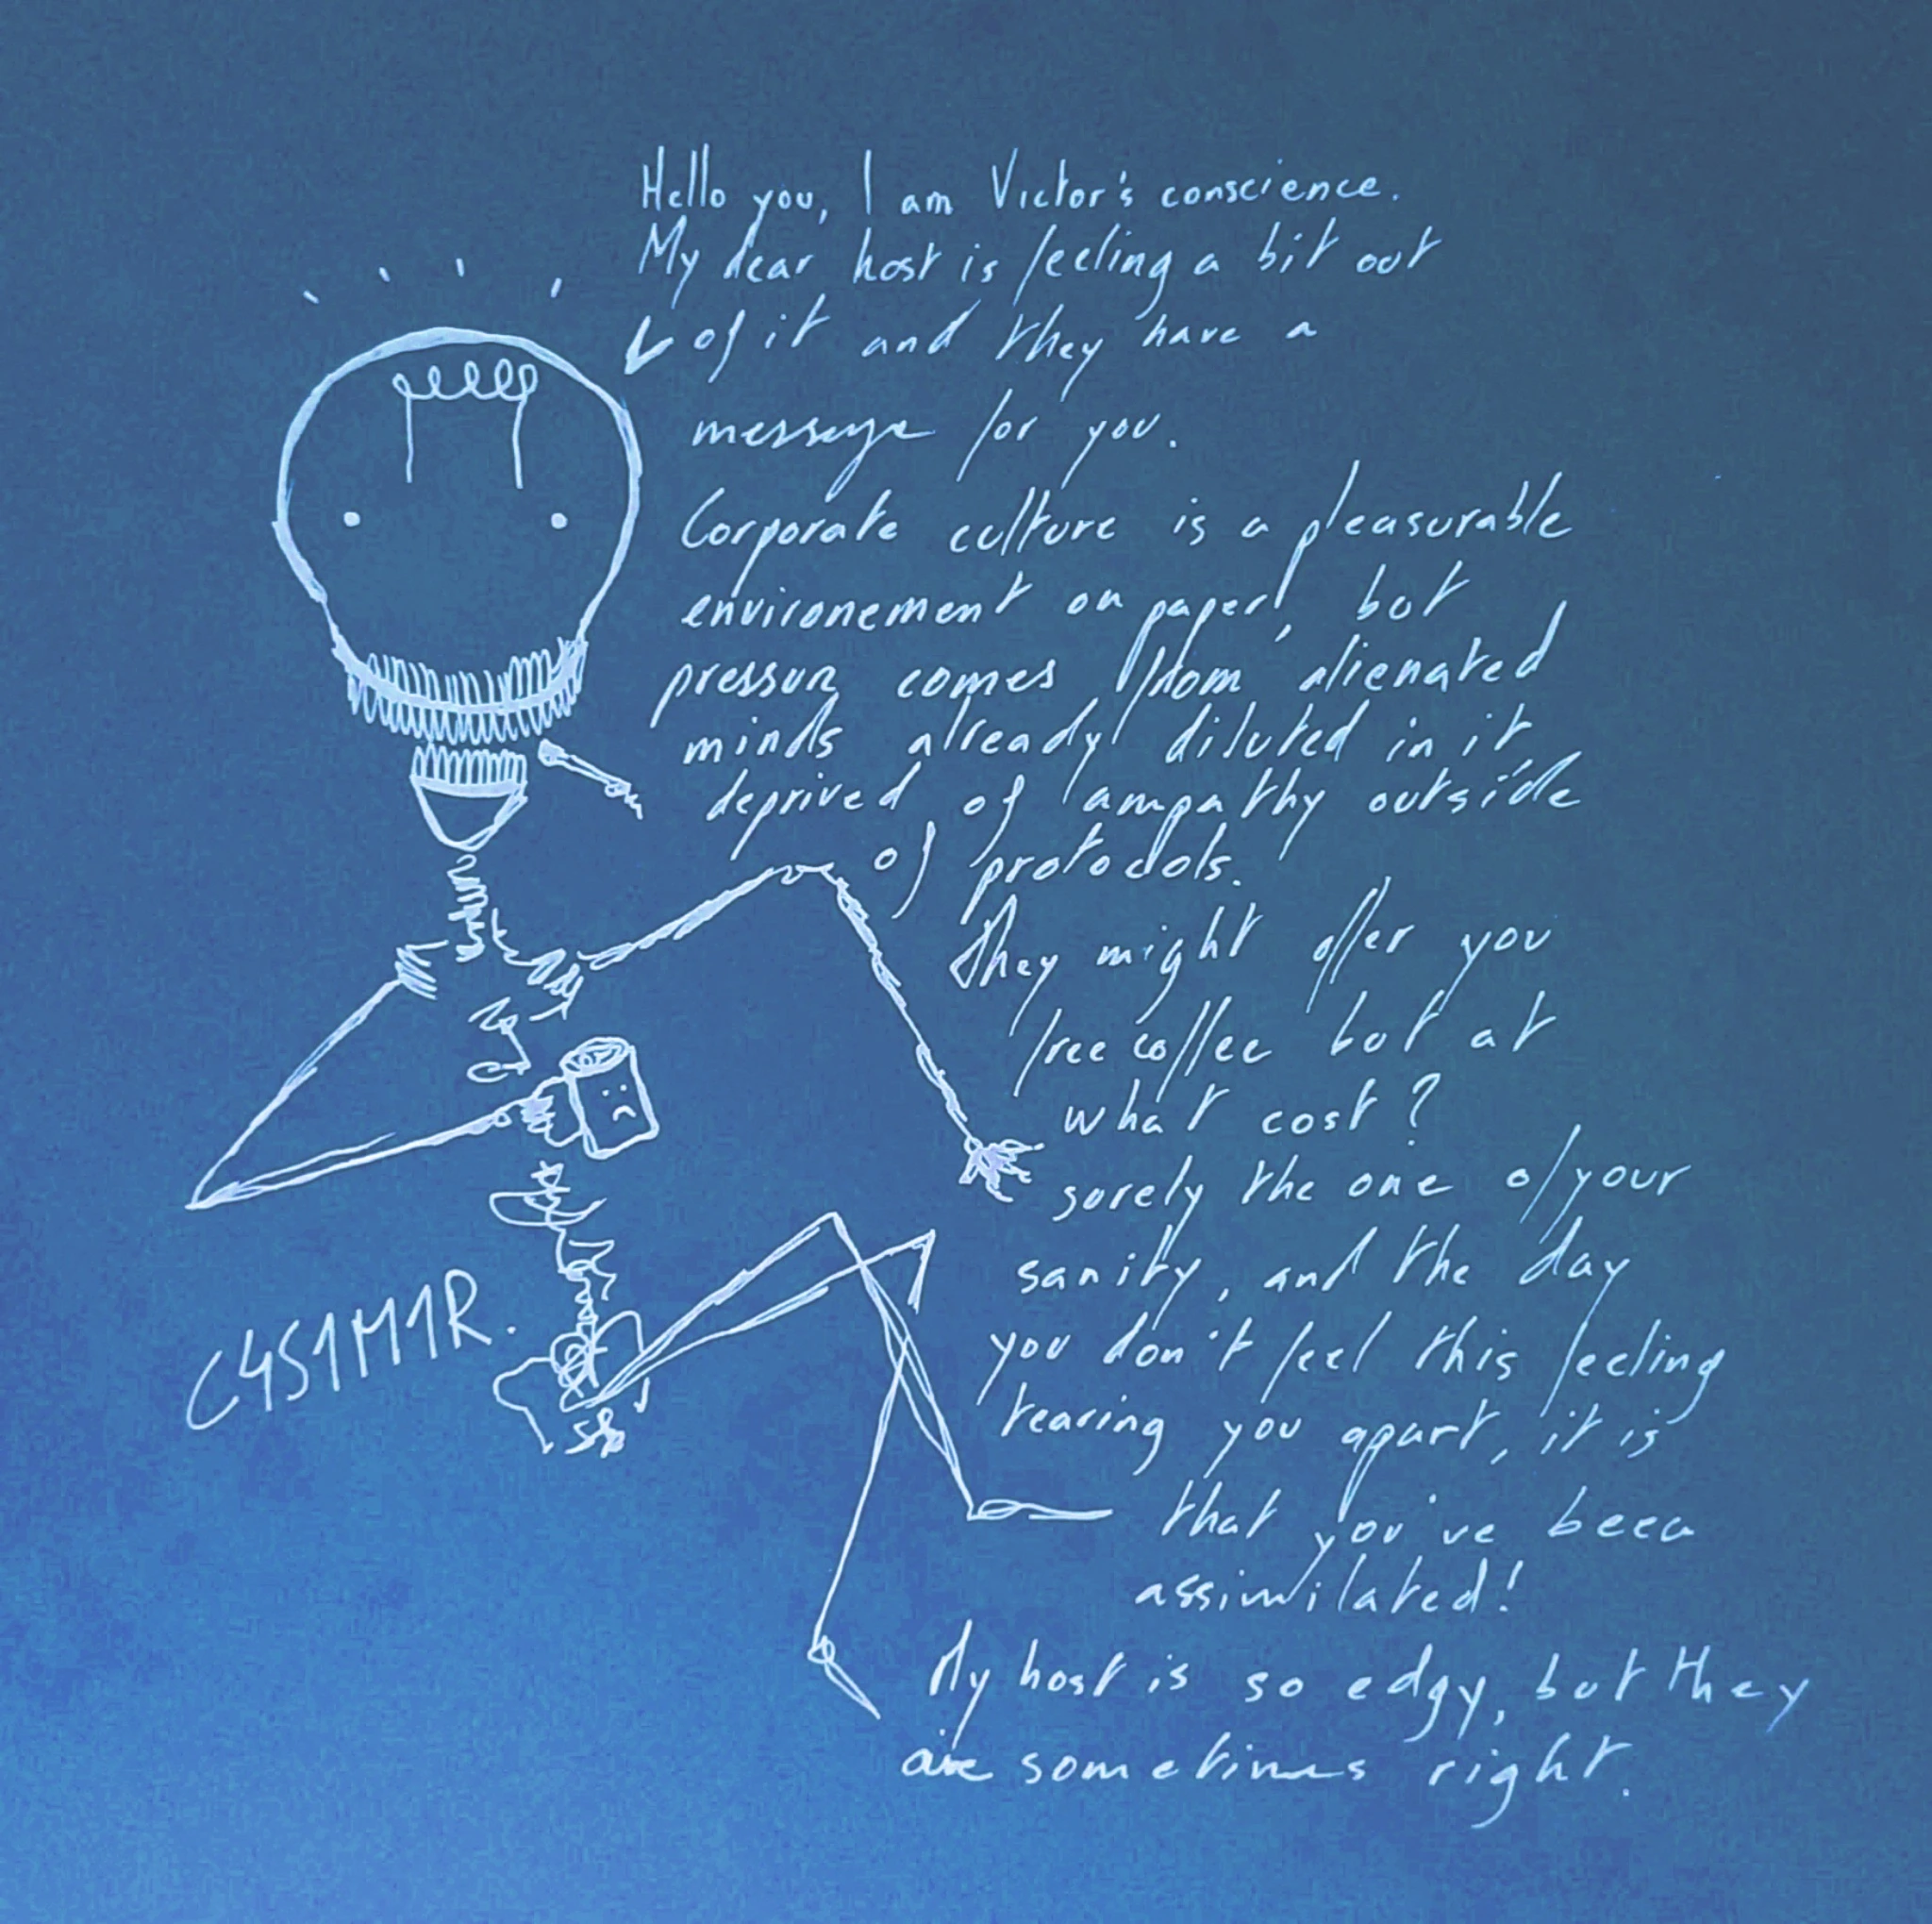 Hello you, I am Victor's conscience.
My dear host is feeling a bit out
of it and they have a
message for you.
Corporate culture is a pleasurable
environement on paper, but
pressur comes from alienated
minds already diluted in it
deprived of ampathy outside
of protocols.
They might offer you
free coffee but at
what cost?
surely the one of your
sanity, and the day
you don't feel this feeling
tearing you apart, it is
that you've been
assimilated!
My host is so edgy, but they
are sometimes right.
C4S1M1R.